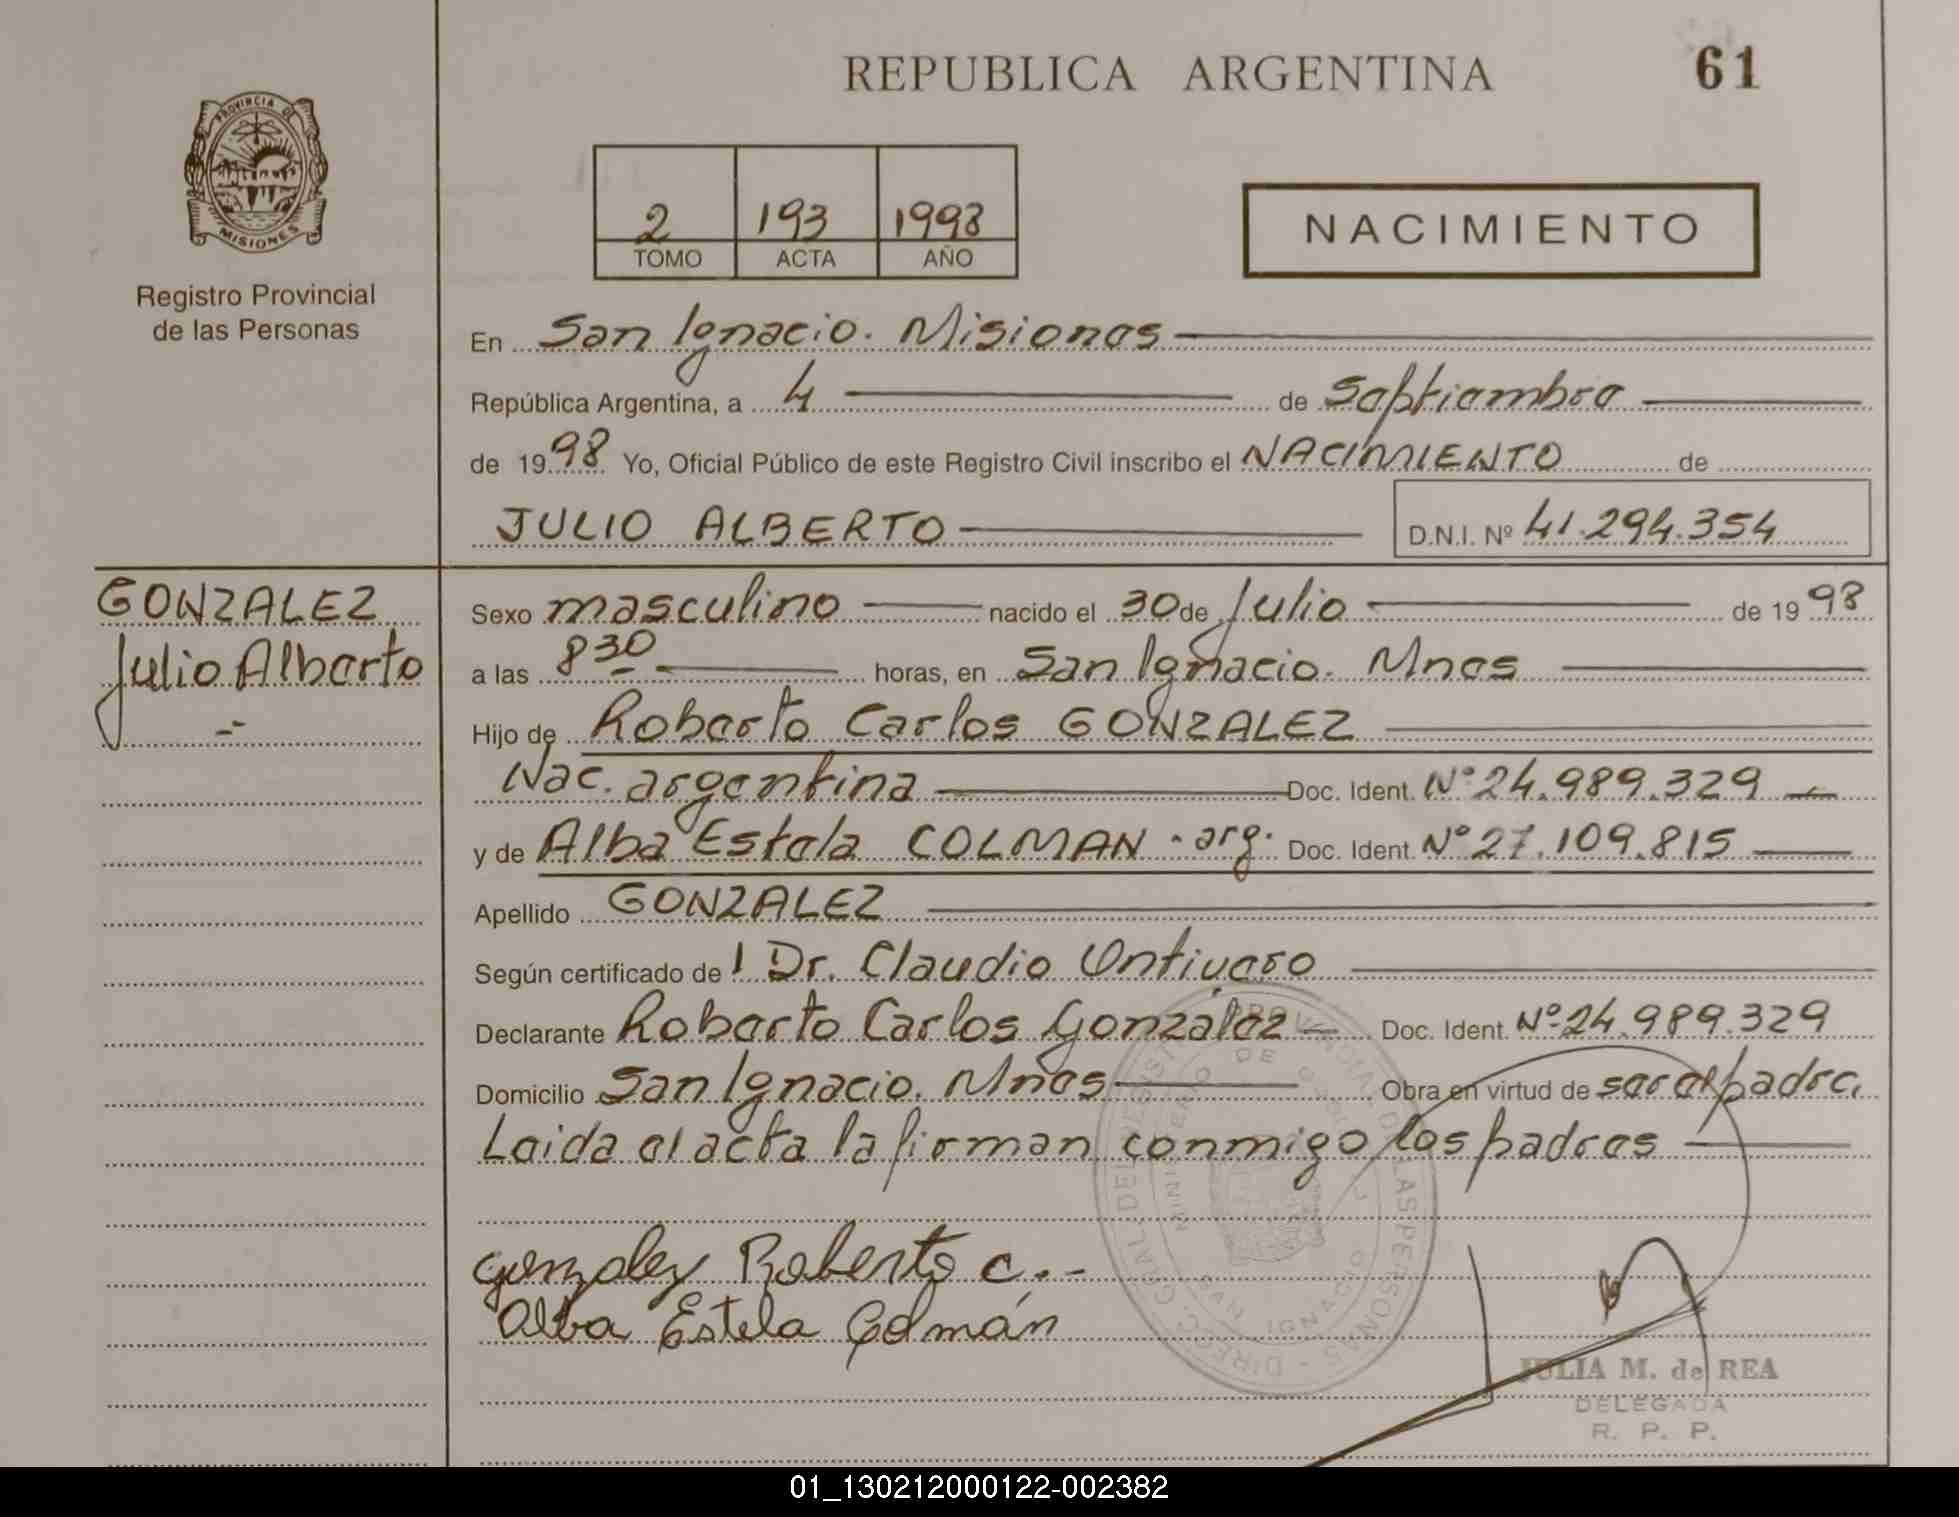 REPUBLICA ARGENTINA
61
PROVINCIA DE
MISIONES
Registro Provincial
de las Personas
2 193 1998
TOMO ACTA AÑO
NACIMIENTO
En San Ignacio. Misiones
República Argentina, a 4 de Septiembre
de 1998 Yo, Oficial Público de este Registro Civil inscribo el NACIMIENTO de
JULIO ALBERTO D.N.I. Nº 41.294.354
GONZALEZ
Julio Alberto
Sexo masculino nacido el 30 de Julio de 1998
a las 8 30 horas, en San Ignacio. Mnes
Hijo de Roberto Carlos GONZALEZ
Nac. argentina Doc. Ident. Nº 24.989.329
y de Alba Estela COLMAN - arg. Doc. Ident. Nº 27.109.815
Apellido GONZALEZ
Según certificado de l Dr. Claudio Ontivero
Declarante Roberto Carlos Gonzalez Doc. Ident. Nº 24.989.329
Domicilio San Ignacio. Mnes Obra en virtud de ser el padre.
Leida el acta la firman conmigo los padres
Gonzalez Roberto C.-
Alba Estela Colmán
SAN IGNACIO
JULIA M. de REA
DELEGADA
R. P. P.
01_130212000122-002382